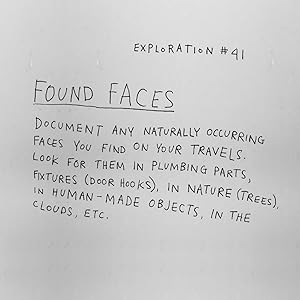 EXPLORATION #41
FOUND FACES
DOCUMENT ANY NATURALLY OCCURRING
FACES YOU FIND ON YOUR TRAVELS.
LOOK FOR THEM IN PLUMBING PARTS,
FIXTURES (DOOR HOOKS), IN NATURE (TREES),
IN HUMAN-MADE OBJECTS, IN THE
CLOUDS, ETC.